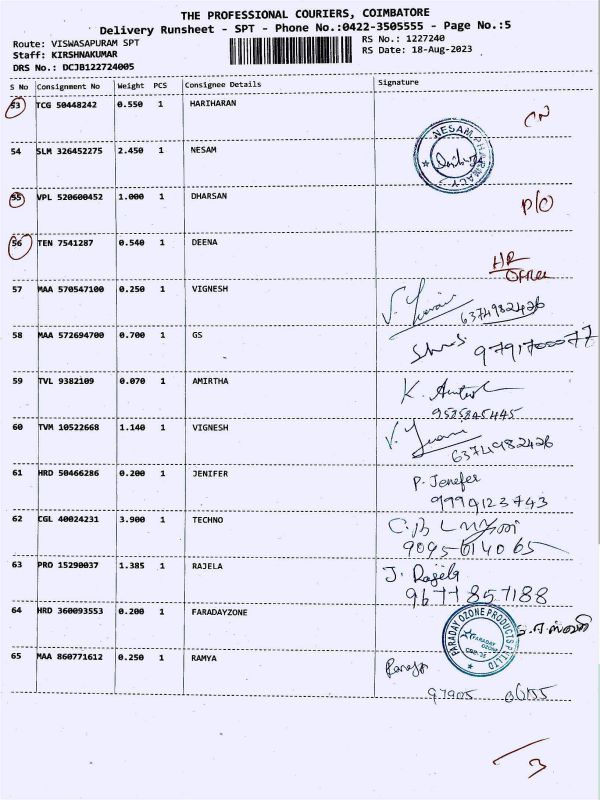 THE PROFESSIONAL COURIERS, COIMBATORE
Delivery Runsheet - SPT - Phone No.:0422-3505555 - Page No.:5
Route: VISWASAPURAM SPT
RS No.: 1227240
Staff: KIRSHNAKUMAR
RS Date: 18-Aug-2023
DRS No.: DCJB122724005
S No Consignment No Weight PCS Consignee Details Signature
53 TCG 50448242 0.550 1 HARIHARAN
54 SLM 326452275 2.450 1 NESAM
NESAM PHARMACY
55 VPL 520600452 1.000 1 DHARSAN P/O
56 TEN 7541287 0.540 1 DEENA
HR
Office
57 MAA 570547100 0.250 1 VIGNESH
6374982426
58 MAA 572694700 0.700 1 GS
9791700077
59 TVL 9382109 0.070 1 AMIRTHA
9585845445
60 TVM 10522668 1.140 1 VIGNESH
6374982426
61 HRD 50466286 0.200 1 JENIFER
P. Jenefer
9999123743
62 CGL 40024231 3.900 1 TECHNO
9095614065
63 PRO 15290037 1.385 1 RAJELA
J. Rajela
9677857188
64 HRD 360093553 0.200 1 FARADAYZONE
FARADAY OZONE PRODUCTS PVT LTD
FARADAY
OZONE
65 MAA 860771612 0.250 1 RAMYA
97905 06155
3